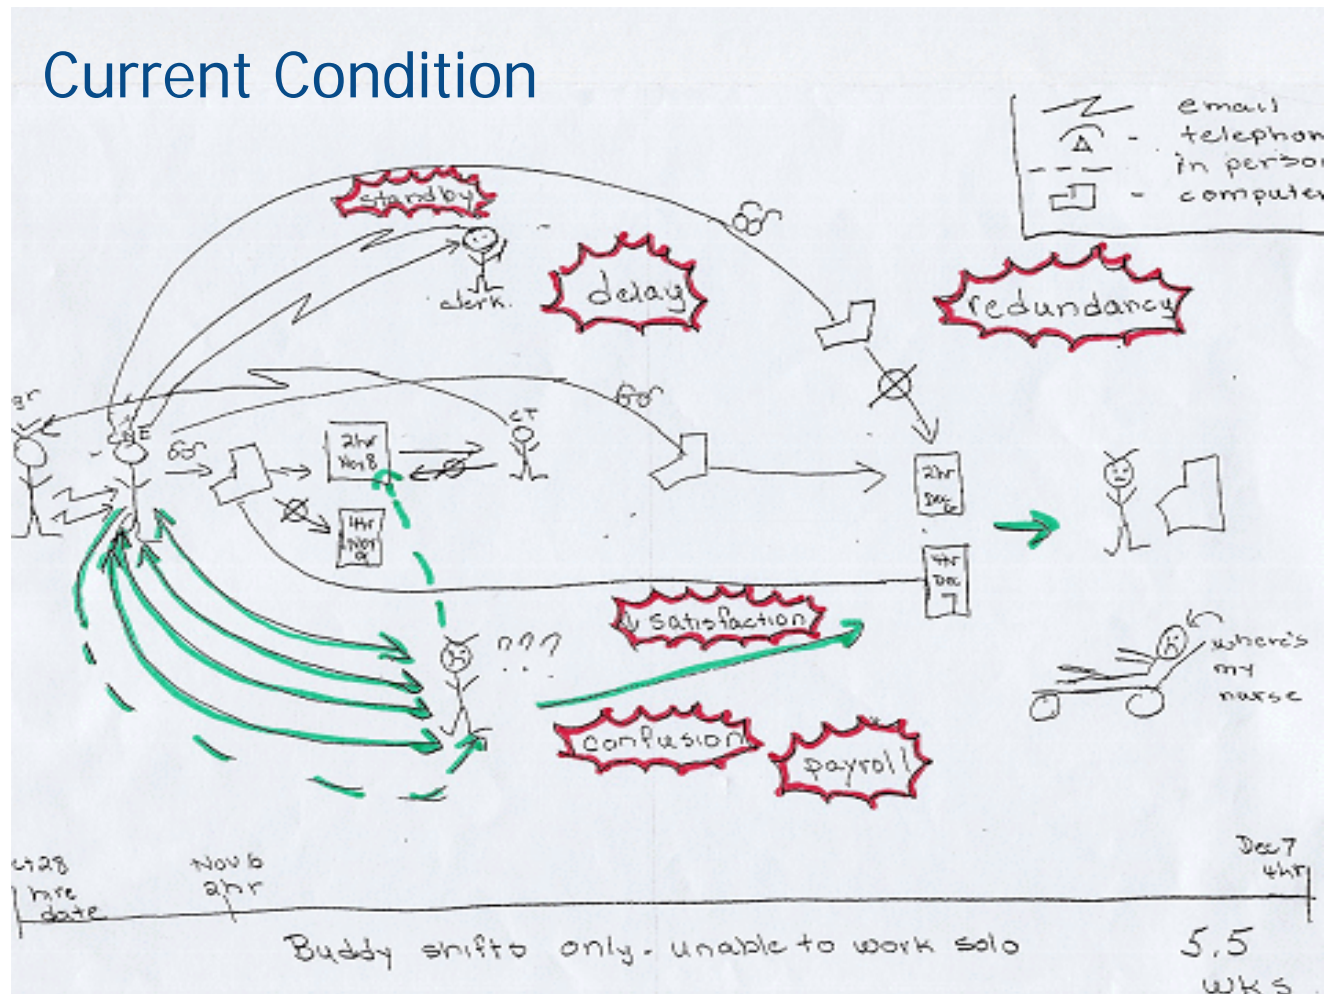 Current Condition
email
telephon
in person
computer
standby
clerk.
delay
redundancy
CT
2hr
Nov 8
4hr
Nov
9
2hr
Dec
6
4hr
Dec
7
???
↓ satisfaction
confusion
payroll
where's
my
nurse
ct 28
hire
date
Nov 6
2hr
Dec 7
4hr
Buddy shifts only - unable to work solo
5.5
wks